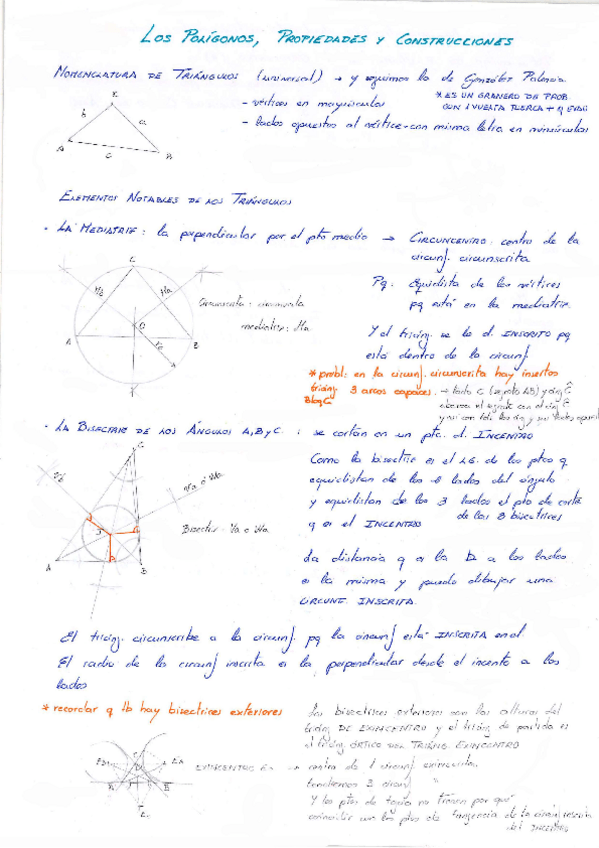 LOS POLÍGONOS, PROPIEDADES Y CONSTRUCCIONES
NOMENCLATURA DE TRIÁNGULOS (universal) → y seguimos la de González Palencia
* ES UN GRANERO DE PROB.
CON 1 VUELTA TUERCA +
- vértices en mayúsculas
- lados opuestos al vértice con misma letra en minúsculas
b
a
A
c
B
ELEMENTOS NOTABLES DE LOS TRIÁNGULOS
· LA MEDIATRIZ : la perpendicular por el pto medio → CIRCUNCENTRO: centro de la
circunf. circunscrita
Pq. Equidista de los vértices
pq está en la mediatriz.
C
O
A
B
mediatriz: Ma
Y el triáng. se le d. INSCRITO pq
está dentro de la circunf
* probl: en la circunf. circunscrita hay insertos
triáng 3 arcos capaces. → lado C (segmto AB) y áng Ĉ
· LA BISECTRIZ DE LOS ÁNGULOS A, B y C. : se cortan en un pto. d. INCENTRO
C
Como la bisectriz es el LG. de los ptos q
equidistan de los lados del ángulo
y equidistan de los 3 lados el pto de corte
de las 3 bisectrices
q es el INCENTRO
Bisectriz: Va o Wa
A
B
La distancia q es la ⊥ a los lados
es la misma y puedo dibujar una
CIRCUNF. INSCRITA.
El triáng. circunscribe a la circunf. pq la circunf está INSCRITA en él
El radio de la circunf inscrita es la perpendicular desde el incentro a los
lados
* recordar q tb hay bisectrices exteriores
Las bisectrices exteriores son las alturas del
triáng DE EXINCENTRO y el triáng de partida es
el triáng ÓRTICO DEL TRIÁNG EXINCENTRO
EXINCENTRO centro de 1 circunf exinscrita.
tendremos 3 circunf "
Y los ptos de tang no tienen por qué
coincidir con los ptos de tangencia de la circunf inscrita
del INCENTRO